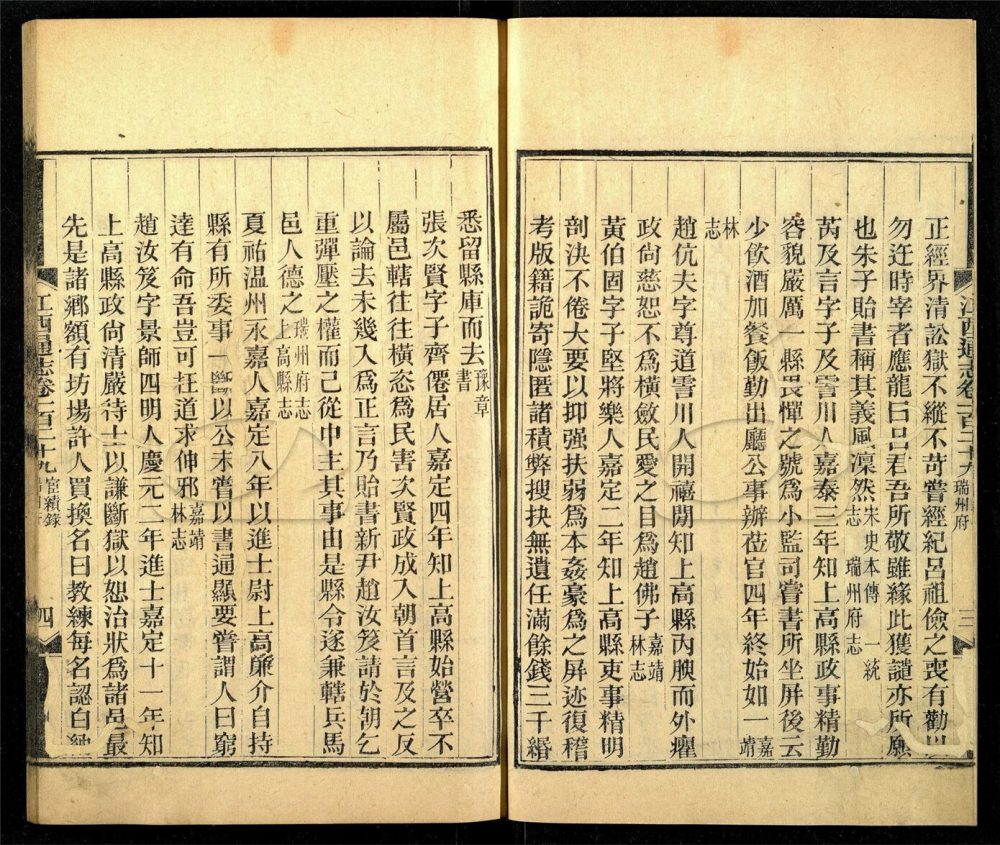 江西通志卷一百二十九 瑞州府 三
正經界清訟獄不縱不苛嘗經紀呂祖儉之喪有勸以
勿迕時宰者應龍曰呂君吾所敬雖緣此獲譴亦所願
也朱子貽書稱其義風凜然宋史本傳 一統志 瑞州府志
芮及言字子及霅川人嘉泰三年知上高縣政事精勤
容貌嚴厲一縣畏憚之號為小監司嘗書所坐屏後云
少飲酒加餐飯勤出廳公事辦莅官四年終始如一嘉靖
林志
趙伉夫字尊道霅川人開禧閒知上高縣內腴而外癯
政尙慈恕不為橫斂民愛之目為趙佛子嘉靖林志
黃伯固字子堅將樂人嘉定二年知上高縣吏事精明
剖決不倦大要以抑强扶弱為本姦豪為之屏迹復稽
考版籍詭寄隱匿諸積弊搜抉無遺任滿餘錢三千緡
悉留縣庫而去豫章書
張次賢字子齊僊居人嘉定四年知上高縣始營卒不
屬邑轄往往橫恣為民害次賢政成入朝首言及之反
以論去未幾入為正言乃貽書新尹趙汝笈請於朝乞
重彈壓之權而己從中主其事由是縣令遂兼轄兵馬
邑人德之瑞州府志 上高縣志
夏祐温州永嘉人嘉定八年以進士尉上高廉介自持
縣有所委事一斷以公未嘗以書通顯要嘗謂人曰窮
達有命吾豈可枉道求伸邪嘉靖林志
趙汝笈字景師四明人慶元二年進士嘉定十一年知
上高縣政尙清嚴待士以謙斷獄以恕治狀為諸邑最
先是諸鄉額有坊場許人買換名曰教練每名認白
江西通志卷一百二十九 宦績錄 四